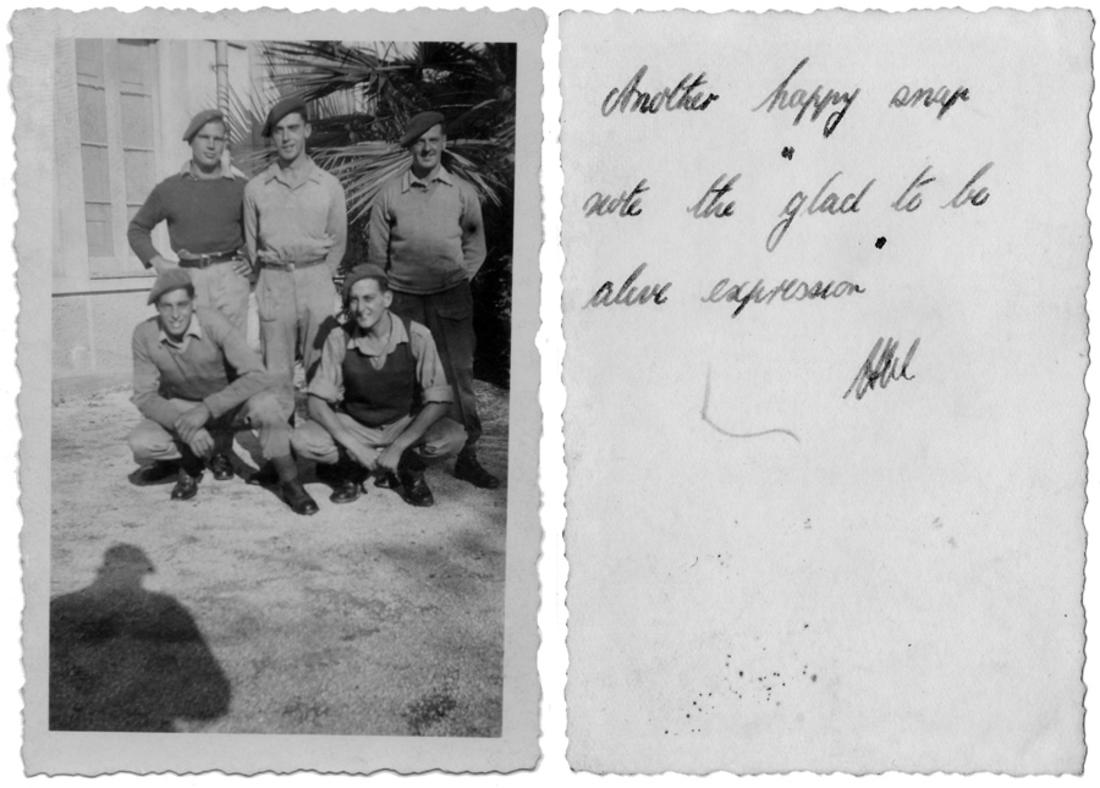 Another happy snap
note the "glad to be
alive" expression